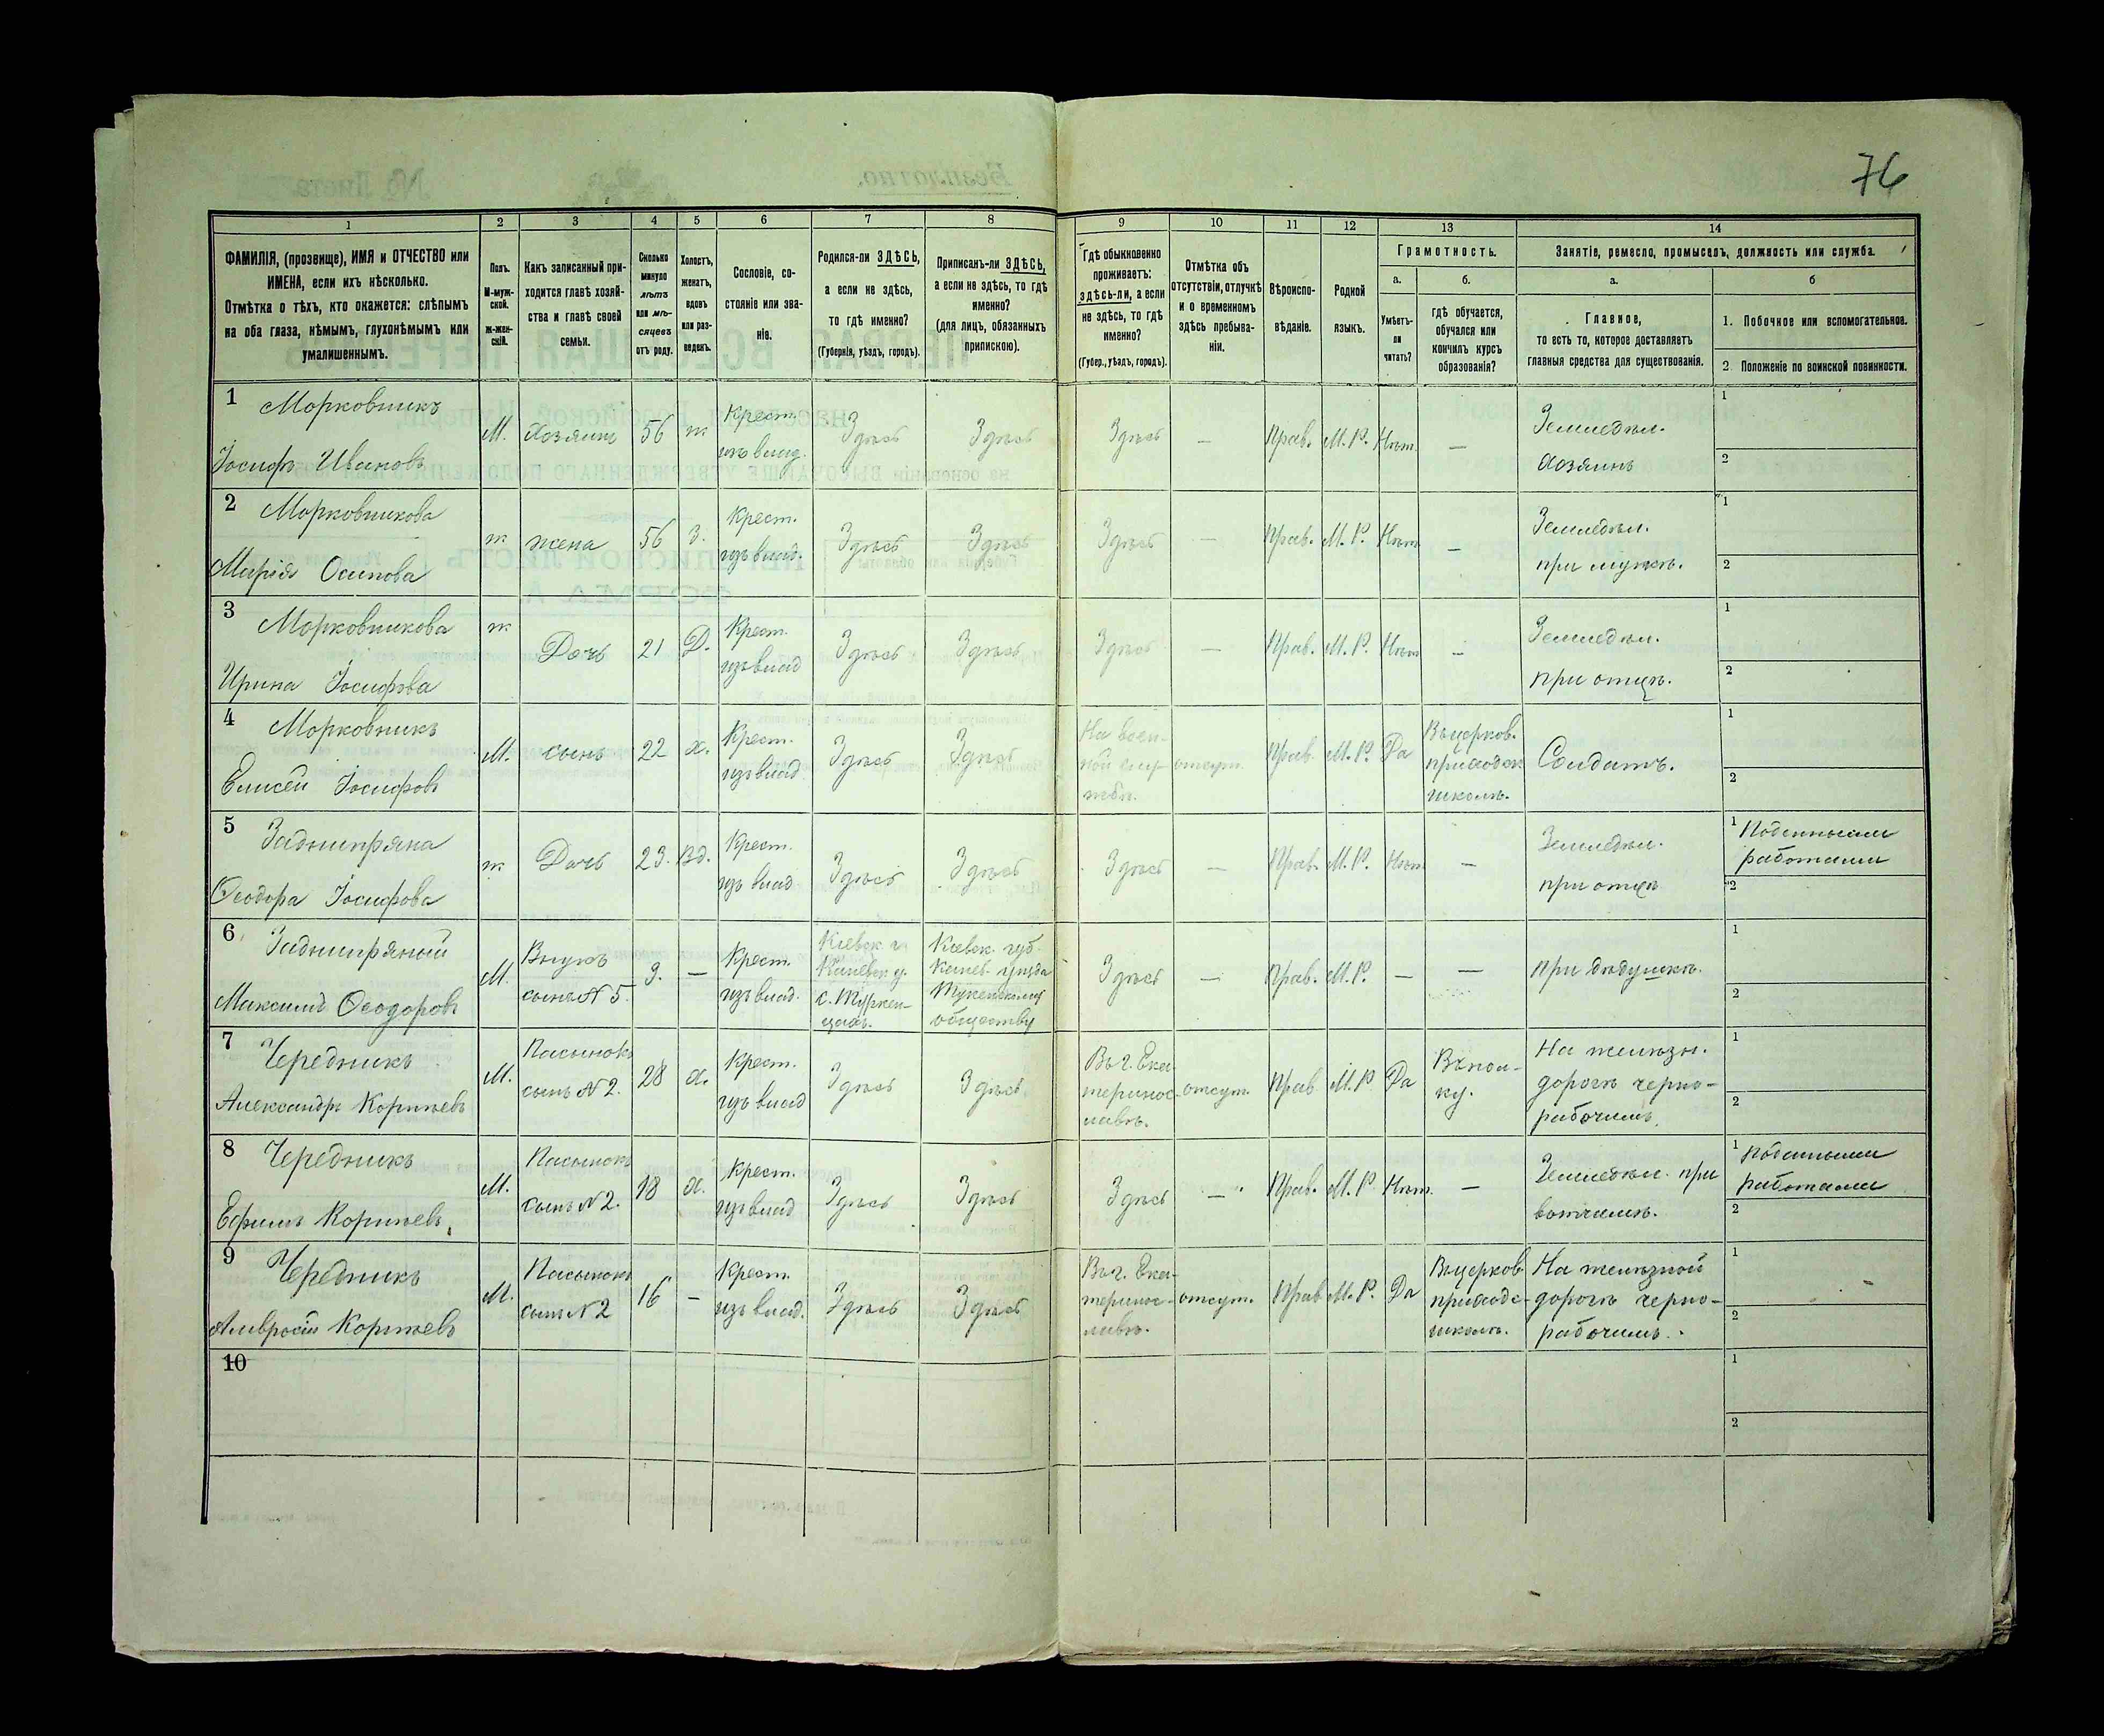 76
1 2 3 4 5 6 7 8 9 10 11 12 13 14
ФАМИЛІЯ, (прозвище), ИМЯ и ОТЧЕСТВО или
ИМЕНА, если ихъ нѣсколько.
Отмѣтка о тѣхъ, кто окажется: слѣпымъ
на оба глаза, нѣмымъ, глухонѣмымъ или
умалишеннымъ.
Полъ.
М-муж-
ской.
Ж-жен-
скій.
Какъ записанный при-
ходится главѣ хозяй-
ства и главѣ своей
семьи.
Сколько
минуло
лѣтъ
или мѣ-
сяцевъ
отъ роду.
Холостъ,
женатъ,
вдовъ
или раз-
веденъ.
Сословіе, со-
стояніе или зва-
ніе.
Родился-ли ЗДѢСЬ,
а если не здѣсь,
то гдѣ именно?
(Губернія, уѣздъ, городъ).
Приписанъ-ли ЗДѢСЬ,
а если не здѣсь, то гдѣ
именно?
(для лицъ, обязанныхъ
припискою).
Гдѣ обыкновенно
проживаетъ:
здѣсь-ли, а если
не здѣсь, то гдѣ
именно?
(Губер., уѣздъ, городъ).
Отмѣтка объ
отсутствіи, отлучкѣ
и о временномъ
здѣсь пребыва-
ніи.
Вѣроиспо-
вѣданіе.
Родной
языкъ.
Грамотность.
а.
Умѣетъ-
ли
читать?
б.
гдѣ обучается,
обучался или
кончилъ курсъ
образованія?
Занятіе, ремесло, промыселъ, должность или служба.
а.
Главное,
то есть то, которое доставляетъ
главныя средства для существованія.
б
1. Побочное или вспомогательное.
2. Положеніе по воинской повинности.
1 Морковникъ
Іосифъ Ивановъ
М.
Хозяинъ
56
ж
Крест.
изъ влад.
Здѣсь
Здѣсь
Здѣсь
—
Прав.
М. Р.
Нѣт.
—
Земледѣл.
Хозяинъ
1
2
2 Морковникова
Марія Осипова
ж
жена
56
З.
Крест.
изъ влад.
Здѣсь
Здѣсь
Здѣсь
—
Прав.
М. Р.
Нѣт
—
Земледѣл.
при мужѣ.
1
2
3 Морковникова
Ирина Іосифова
ж
Дочь
21
Д.
Крест.
изъ влад
Здѣсь
Здѣсь
Здѣсь
—
Прав.
М. Р.
Нѣт
—
Земледѣл.
при отцѣ.
1
2
4 Морковникъ
Елисей Іосифовъ
М.
сынъ
22
х.
Крест.
изъ влад
Здѣсь
Здѣсь
На воен-
ной слу-
жбѣ.
отсут.
Прав.
М. Р.
Да
Въ церков.
приходск
школѣ.
Солдатъ.
1
2
5 Заднипряна
Ѳеодора Іосифова
ж
Дочь
23.
Вд.
Крест.
изъ влад
Здѣсь
Здѣсь
Здѣсь
—
Прав.
М. Р.
Нѣт
—
Земледѣл.
при отцѣ
1 Поденными
работами
2
6 Заднипряный
Максимъ Ѳеодоровъ
М.
Внукъ
сынъ N 5.
3.
—
Крест.
изъ влад.
Кіевск. г.
Каневск у.
Кіевск. губ.
Канев. уѣзда
обществу
Здѣсь
—
Прав.
М. Р.
—
—
При дѣдушкѣ.
1
2
7 Чередникъ
Александръ Корнѣевъ
М.
Пасынокъ
сынъ N 2.
28
х.
Крест.
изъ влад
Здѣсь
Здѣсь.
Въ г. Ека-
теринос-
лавѣ.
отсут.
Прав
М. Р
Да
Въ пол-
ку.
На желѣзн.
дорогѣ черно-
рабочимъ.
1
2
8 Чередникъ
Ефимъ Корнѣевъ.
М.
Пасынокъ
сынъ N 2.
18
х.
Крест.
изъ влад
Здѣсь
Здѣсь
Здѣсь
—
Прав.
М. Р
Нѣт.
—
Земледѣл. при
вотчимѣ.
1 Поденными
работами
2
9 Чередникъ
Амвросій Корнѣевъ
М.
Пасынокъ
сынъ N 2
16
—
Крест.
изъ влад.
Здѣсь
Здѣсь
Въ г. Ека-
теринос-
лавѣ.
отсут.
Прав
М. Р.
Да
Въ церков
приходс-
школѣ.
На желѣзной
дорогѣ черно-
рабочимъ.
1
2
10
1
2